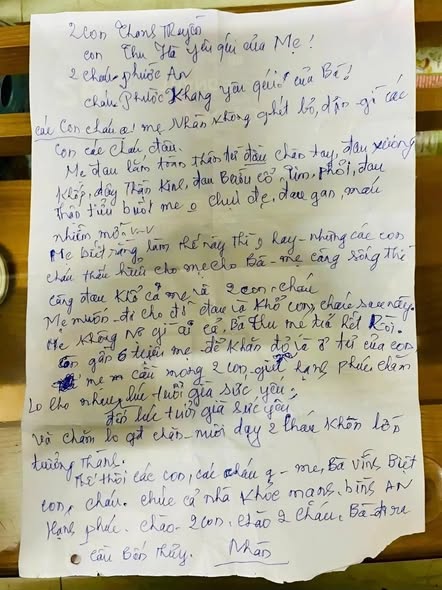 2 con Thong Tuyền
con Thu Hà yêu quí của Mẹ!
2 cháu phước AN
cháu Phước Khang yêu quí của Bà!
các con cháu ạ! mẹ Nhàn không ghét bỏ, dận gì các
con các cháu đâu.
Mẹ đau lắm toàn thân từ đầu chân tay, đau xương
Khớp, dây Thần Kinh, đau Bướu cổ, Tim, Phổi, đau
thận tiểu buốt mẹ o chịu đc, đau gan, máu
nhiễm mỡ v-v
Mẹ biết rằng làm thế này thì o hay - những các con
cháu thấu hiểu cho mẹ cho Bà - mẹ càng sống thì
càng đau khổ cả mẹ và 2 con, cháu
Mẹ muốn - đi cho đỡ đau và khổ con, cháu sau này.
Mẹ không nợ gì ai cả, Bà thu mẹ trả hết rồi.
còn gần 6 triệu mẹ để khăn đỏ là ở tư của con
mẹ cầu mong 2 con giữ hạnh phúc chăm
lo cho nhau lúc tuổi già sức yếu.
đến lúc tuổi già sức yếu,
và chăm lo gd chăn - nuôi dạy 2 cháu khôn lớn
trưởng thàng.
Thế thôi các con, các cháu ạ - mẹ, Bà vĩnh Biệt
con, cháu. chúc cả nhà khỏe mạng, bình AN
Hạnh phúc. chào 2 con, chào 2 cháu, Bà đi ra
cầu Bến Thủy. Nhàn